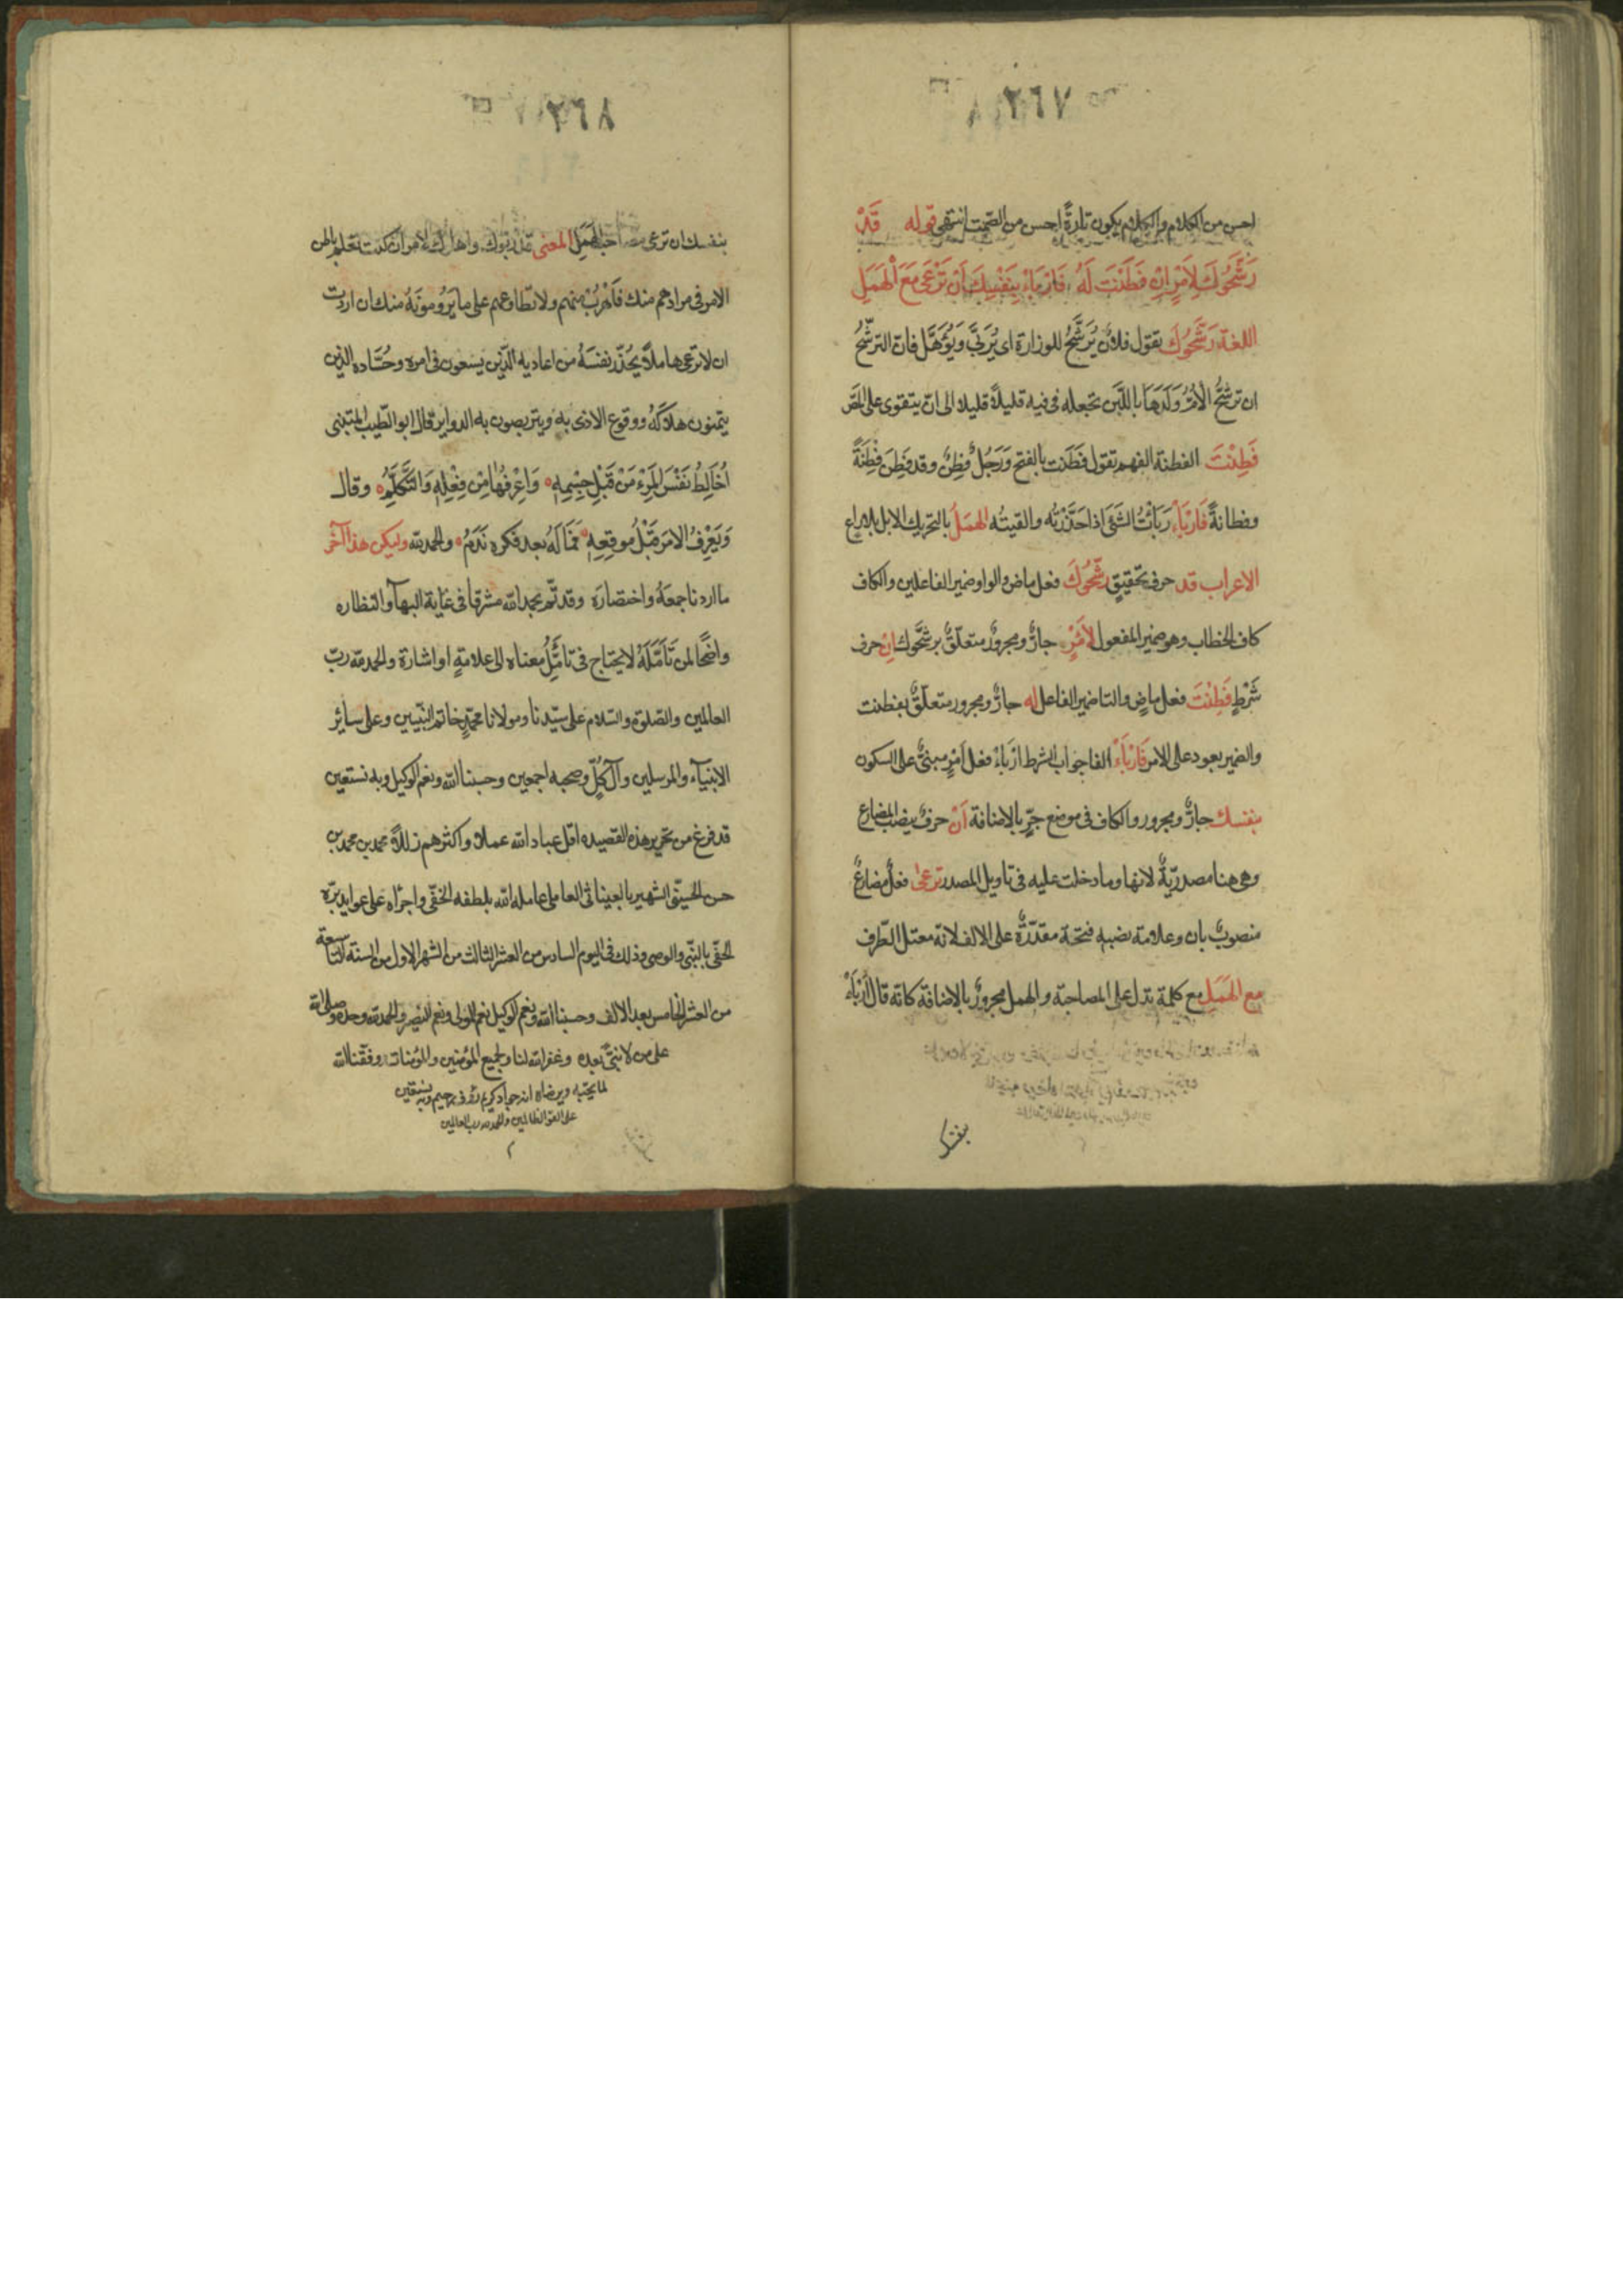 ٢٦٧
احسن من الكلام والكلام يكون تارةً احسن من الصمت انتهى قوله قَدْ
رَشَّحُوكَ لِأَمْرٍ اِنْ فَطَنْتَ لَهُ فَارْبَاءْ بِنَفْسِكَ اَنْ تَرْعَى مَعَ الْهَمَلِ
اللغة رَشَّحُوكَ يقول فلانٌ يُرَشَّحُ للوزارة اى يُرَبَّى وَيُؤَهَّل فان الترشّحُ
ان ترشّحُ الأمُّ وَلَدَهَا باللَّبَن تجعله فى فيه قليلاً قليلا الى ان يتقوى على المصّ
فَطِنْتَ الفطنة الفهم تقول فَطَنت بالفتح وَرَجُلٌ فَطِنٌ وقد فَطِنَ فِطْنَةً
وفطانةً فَارْبَاءْ رَبَأْتُ الشَئَ اذا حَذَّرْتُه والقيتُه الهَمَلُ بالتحريك الابل بلا راع
الاعراب قد حرف تحقيقٍ رشّحُوكَ فعل ماض والواو ضمير الفاعلين والكاف
كاف الخطاب وهو ضمير المفعول لِأَمْرٍ جارٌّ ومجرورٌ متعلّقٌ برشّحوك اِنْ حرف
شَرْطٍ فَطِنْتَ فعل ماضٍ والتا ضمير الفاعل له جارٌّ ومجرور متعلّقٌ بفطنت
والضمير يعود على الامر فَارْبَاءْ الفا جواب الشرط ارْبَاءْ فعل اَمْرٍ مبنىٌّ على السكون
بنفسك جارٌّ ومجرور والكاف فى موضع جرٍّ بالاضافة اَنْ حرفٌ ينصب المضارع
وهى هنا مصدريّةٌ لانها وما دخلت عليه فى تاويل المصدر ترعى فعلٌ مضارعٌ
منصوبٌ بان وعلامة نصبه فتحة مقدّرةٌ على الالف لانه معتل الطرف
مع الهَمَلِ مع كلمة تدل على المصاحبة والهمل مجرورٌ بالاضافة كانه قال ارْبَاءْ
بنفسك
٢٦٨
بنفسك ان ترعى الهَمَل المعنى واهلوك لامر ان كنت تعلم باطن
الامر فى مرادهم منك فَاهْرُبْ منهم ولا تطاوعهم على ما يَرُومُونَهُ منك ان اردت
ان لا ترعى هاملاً يُحذّر نفسَهُ من اعاديه الّذين يسعون فى امره وحُسَّاده الذين
يتمنون هلاكَهُ ووقوع الاذى به ويتربصون به الدواير قال ابو الطّيب المتنبى
اُخَالِطُ نَفْسَ الْمَرْءِ مَنْ قَبْلِ جِسْمِهِ وَاعْرِفُهَا مِنْ فِعْلِهِ وَالتَّكَلُّمِ وقال
وَيَعْرِفُ الامرَ قَبْلَ موقِعِهِ فَمَا لَهُ بعد فكرهِ نَدَمُ والحمد لله وليكن هذا آخر
ما اردنا جمعَهُ واختصارَه وقد تمّ بحمد الله مشرقا فى غاية البهآ والنظاره
واضحًا لمن تَأَمَّلَهُ لا يحتاج فى تامُّلِ معناه الى علامةٍ او اشارة والحمد لله ربّ
العالمين والصّلوة والسّلام على سيّدنا ومولانا محمّدٍ خاتم النبّيين وعلى سائر
الانبيآء والمرسلين وآل كُلٍّ وصحبه اجمعين وحسبنا الله ونعم الوكيل وبه نستعين
قد فرغ من تحرير هذه القصيده اقل عباد الله عملا واكثرهم زللاً محمد بن محمد بن
حسن الحسينى الشهير بالعيناثى العاملى عامله الله بلطفه الخفّى واجراه على عوايد برّه
الحَفّى بالنّبى والوصى وذلك فى اليوم السادس من العشر الثالث من الشهر الاول من السنة التاسعة
من العشر الخامس بعد الالف وحسبنا الله ونعم الوكيل نعم المولى ونعم النصير والحمد لله وحده وصلى الله
على من لا نبىّ بعده وغفر الله لنا ولجميع المؤمنين والمؤمنات ووفقنا الله
لما يحبّه ويرضاه انه جواد كريم رؤف رحيم وبه نستعين
على القوم الظالمين والحمد لله رب العالمين
م